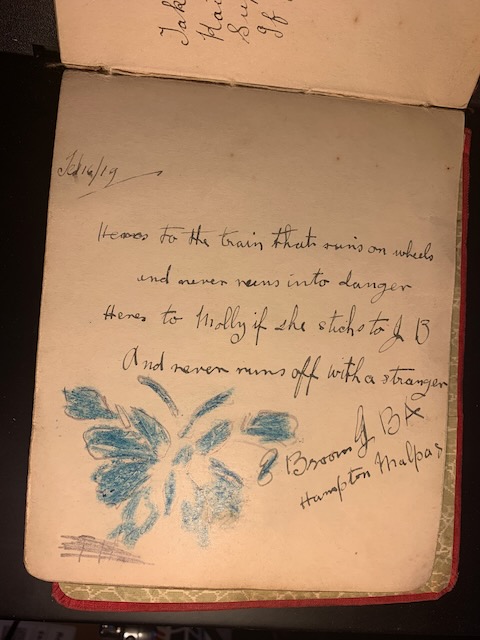 Tak
Hai
Su
If
Feb 16/19
Heres to the train that runs on wheels
and never runs into danger
Heres to Molly if she sticks to J B
And never runs off with a stranger
J B A X
Broom
Hampton Malpas